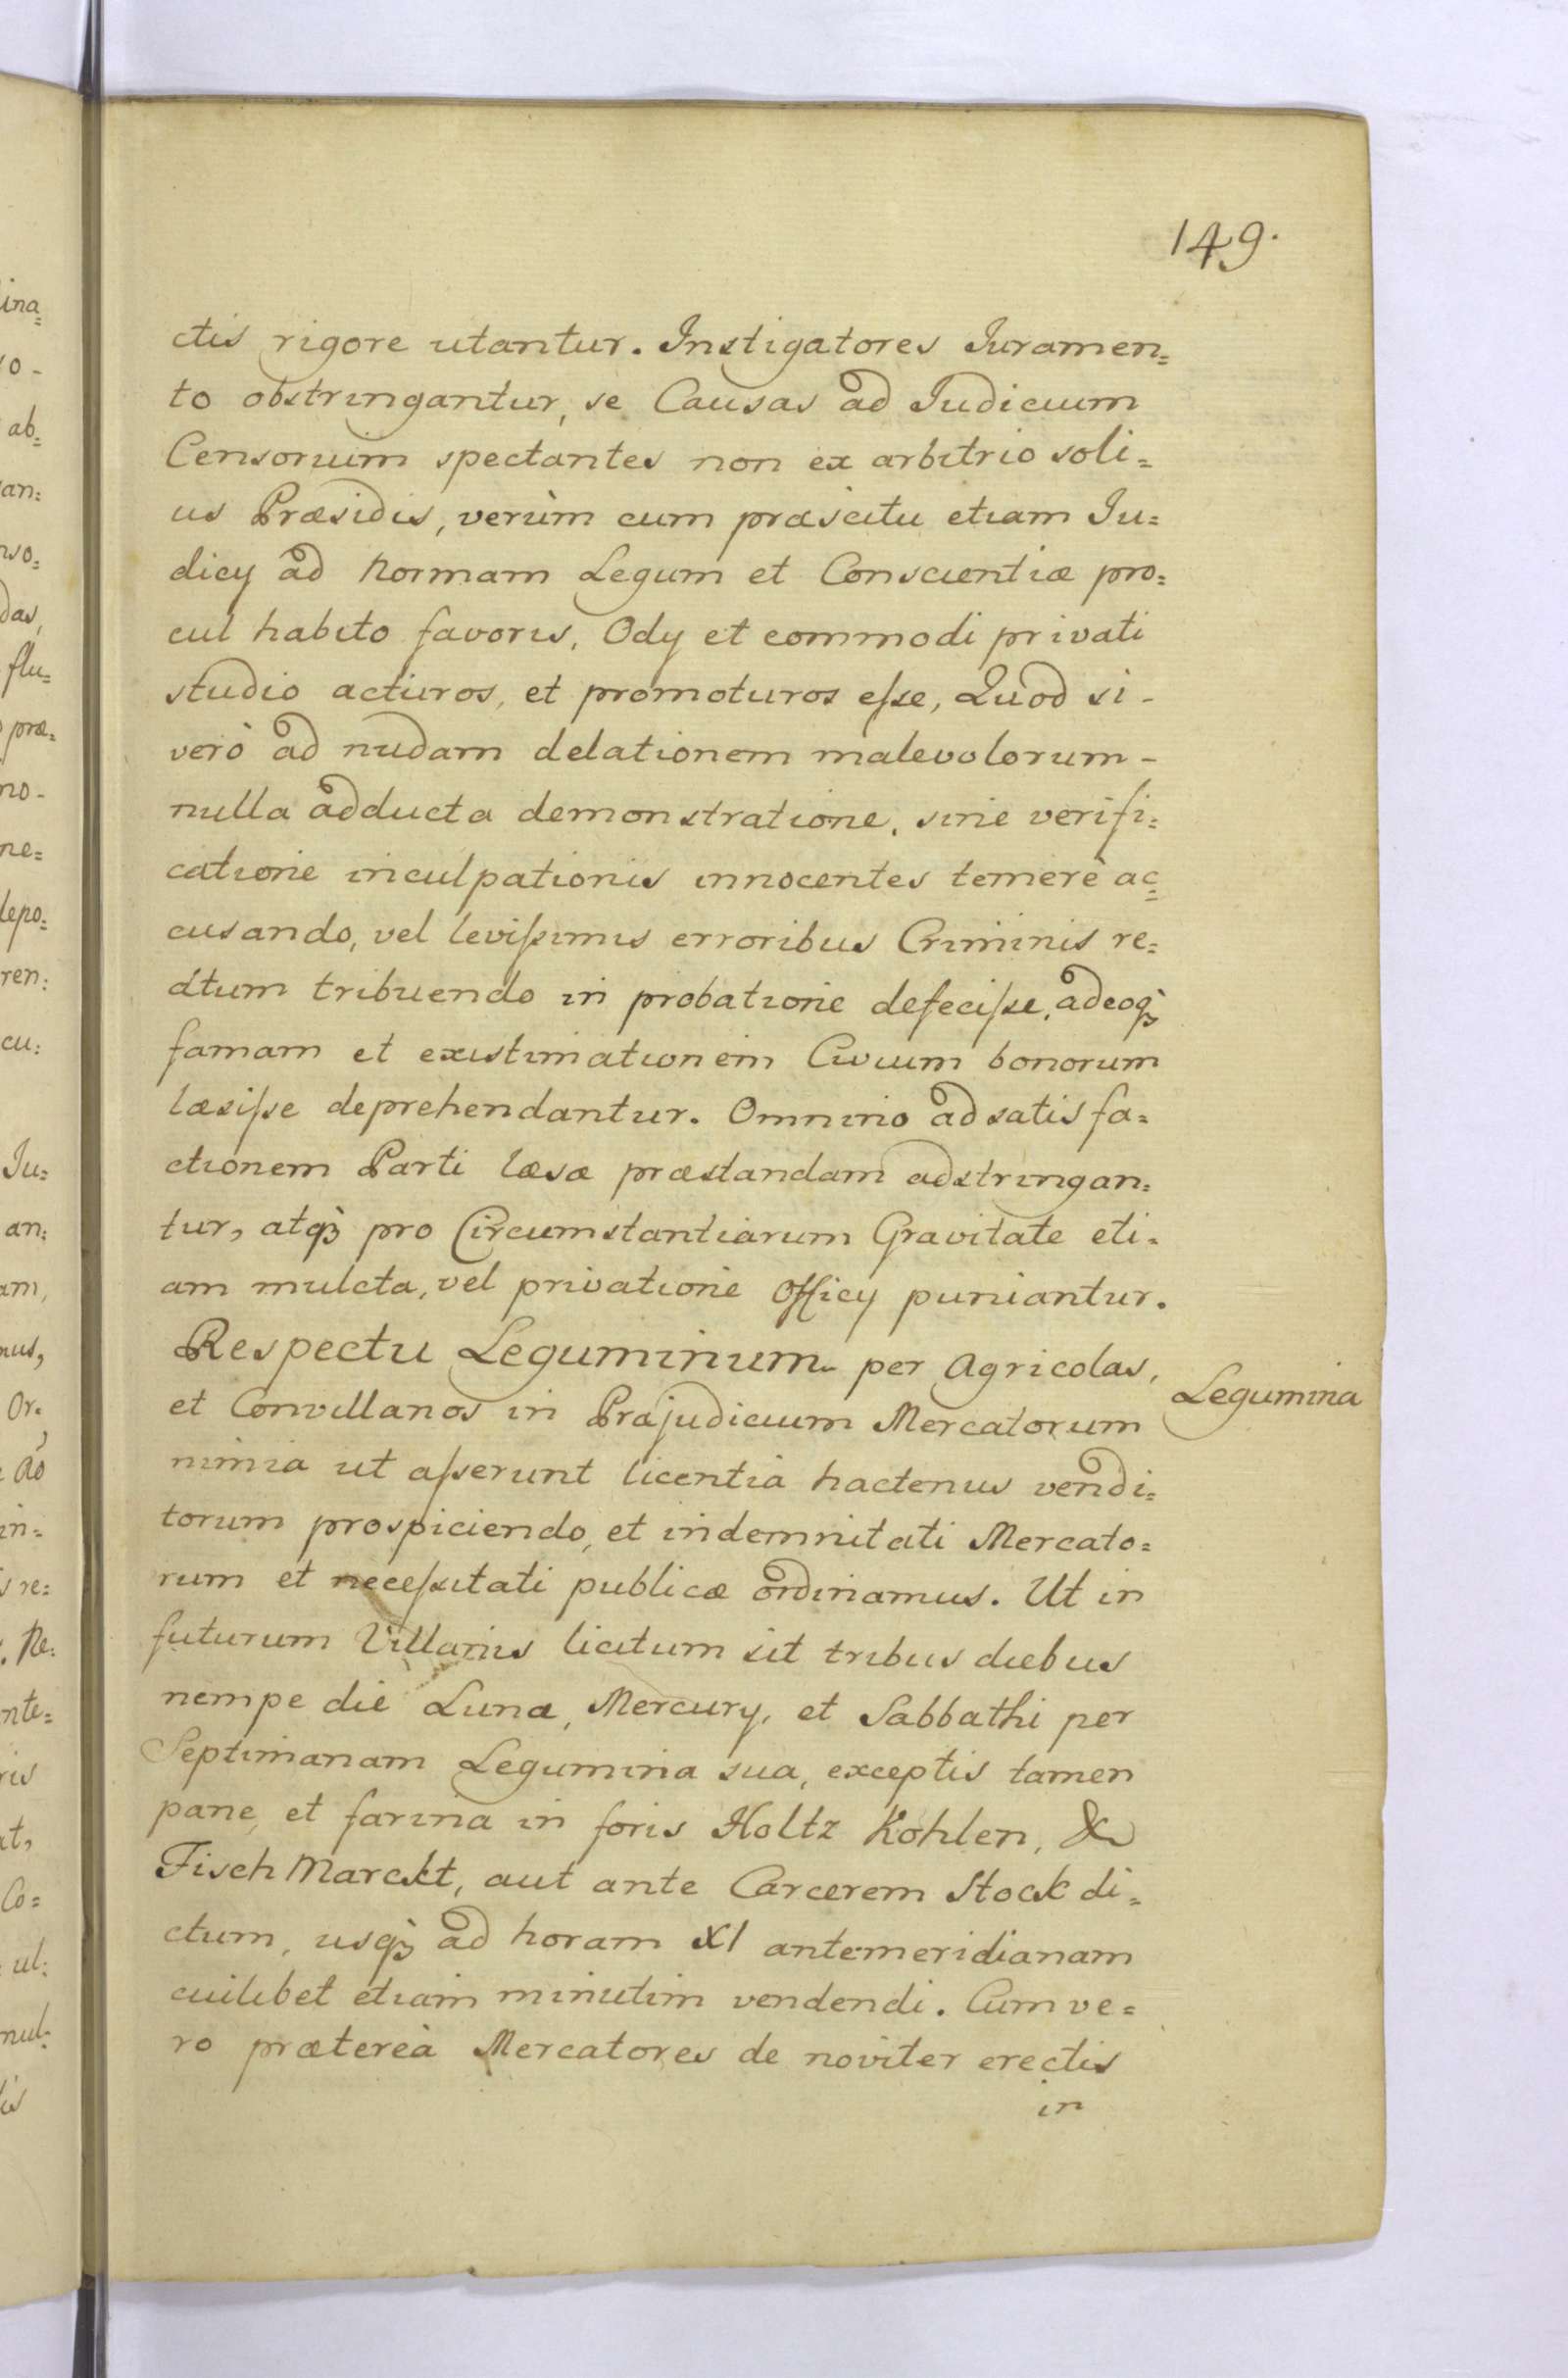 149.
ctis rigore utantur. Instigatores Juramen=
to obstringantur, se Causas ad Judicium
Censorium spectantes non ex arbitrio soli=
us Præsidis, verùm cum præscitu etiam Ju=
dicy ad Normam Legum et Conscientiæ pro=
cul habito favoris, Ody et commodi privati
studio acturos, et promoturos eſse, Quod si-
verò ad nudam delationem malevolorum-
nulla adducta demonstratione, sine verifi=
catione inculpationis innocentes temerè ac=
cusando, vel leviſsimis erroribus Criminis re=
atum tribuendo in probatione defeciſse, adeoq̀ꝫ
famam et existimationem Civium bonorum
læsiſse deprehendantur. Omnino ad satisfa=
ctionem Parti læsæ præstandam adstringan=
tur, atq̀ꝫ pro Circumstantiarum Gravitate eti=
am mulcta, vel privatione Officy puniantur.
Respectu Leguminum per Agricolas,
Legumina
et Convillanos in Præjudicium Mercatorum
nimia ut aſserunt licentia hactenus vendi=
torum prospiciendo, et indemnitati Mercato=
rum et neceſsitati publicæ ordinamus. Ut in
futurum Villanis licitum sit tribus diebus
nempe die Luna, Mercury, et Sabbathi per
Septimanam Legumina sua, exceptis tamen
pane, et farina in foris Holtz Kohlen, &
Fisch Marckt, aut ante Carcerem Stock di=
ctum, usq̀ꝫ ad horam XI antemeridianam
cuilibet etiam minutim vendendi. Cum ve=
ro prætereà Mercatores de noviter erectis
in
ina=
o-
ab=
an=
nso=
das,
flu=
præ=
no-
ne=
depo=
ren:
cu:
Ju=
an:
am,
nus,
Or.
ao
in=
s re=
. Ne:
nte=
ris
at,
Co=
ul:
nul:
lis